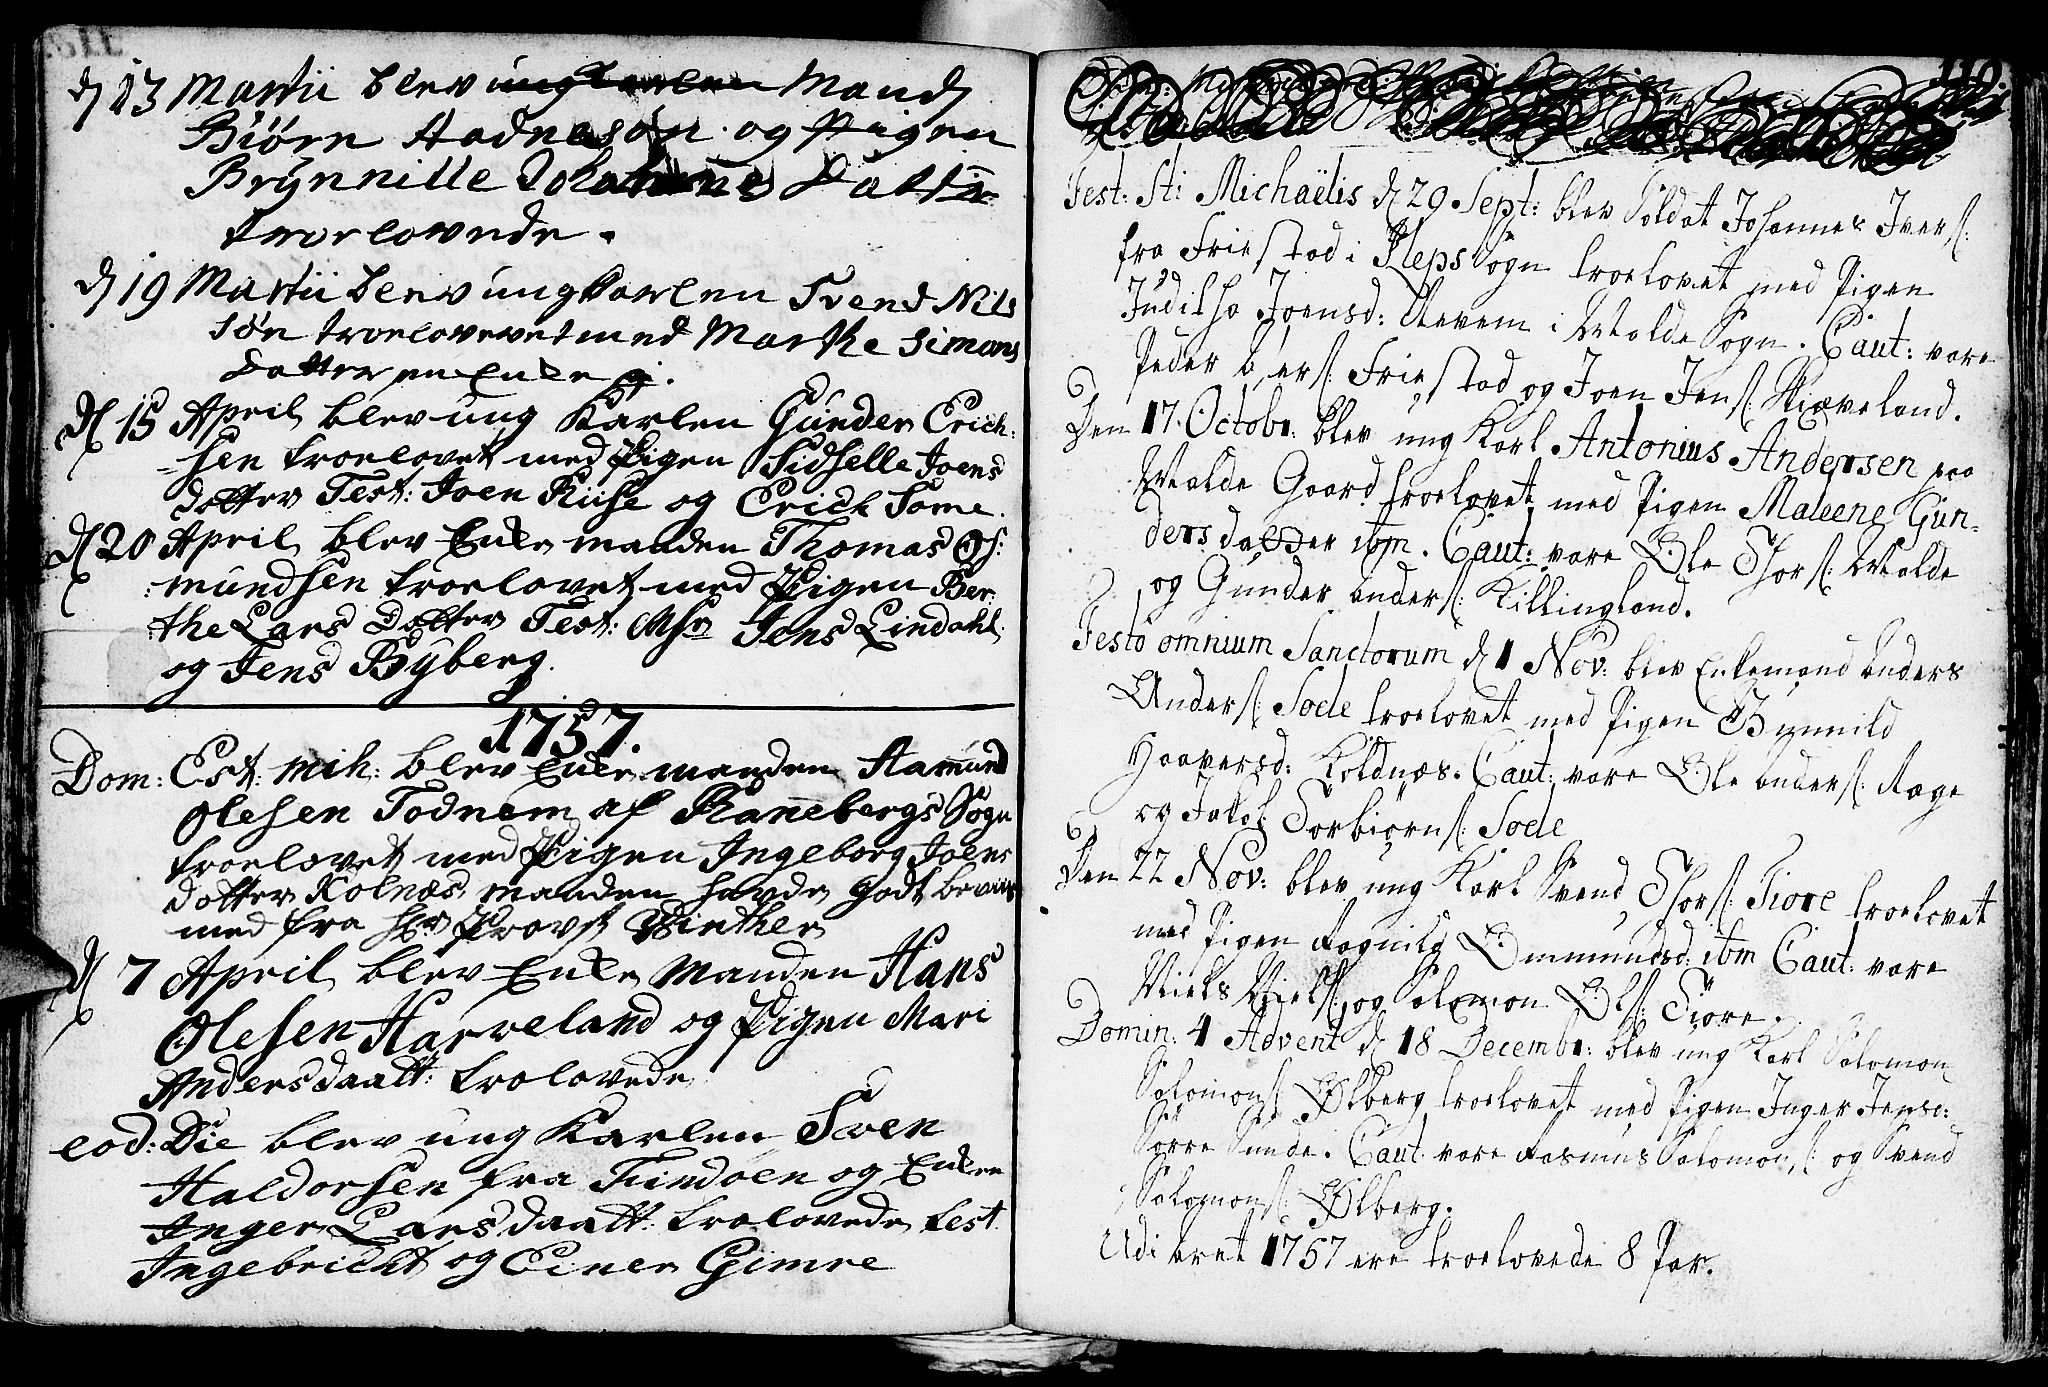 d 13 Martii blev ung karlen Mand
Biørn Hadneson og Pigen
Brÿnnille Johannes Datter
troelovede.
d 19 Martii blev ung karlen Svend Nils
søn troelovevet med Marthe Simons
datter en Enke
d 15 April blev ung Karlen Gunder Erich:
sen troelovet med Pigen Sidselle Joens
dotter Test: Joen Riise og Erich Some.
d 20 April blev Enke manden Thomas Os:
mundsen troelovet med Pigen Ber:
the Lars Dotter Test: Msr Jens Lindahl
og Jens Byberg.
1757.
Dom: Est: mih: blev Enke manden Aamund
Olesen Todnem af Rannebergs Sogn
troelovet med Pigen Ingeborg Joens
dotter Kolnæs, manden havde godt beviis
med fra Hr Provst Winther
d 7 April blev Enke Manden Hans
Olesen Harveland og Pigen Mari
Andersdaatt: trolovede
eod: Die blev ung Karlen Sven
Haldorsen fra Findöen og Enken
Inger Lars daatt: trolovede test
Ingebricht og Einer Gimre
110.
Fest: Sti Michaëlis d 29 Sept: blev Soldat Johannes Ivers:
fra Friestad i Kleps Sogn troelovet med Pigen
Juditha Joensd: i Wtolde Sogn. Caut: vare
Peder Friestad og Joen Jens: Skiæveland.
Den 17. Octobr: blev ung Karl Antonius Andersen paa
Wtolde Gaard troelovet med Pigen Maleene Gun-
ders datter ibm. Caut: vare Ole Thors: Wtolde
og Gunder Anders: Killingland.
Festo omnium Sanctorum d 1 Nov: blev Enkemand Anders
Anders: Soele troelovet med Pigen Gunnild
Haaversd: Koldnæs. Caut: vare Ole Anders: Rage
og Jakob Torbiörns: Soele
Den 22 Nov: blev ung Karl Svend Thors: Tiore troelovet
med Pigen Ragnild Ommundsd: ibm Caut: vare
Niels Niels: og Solomon Ols: Tiore.
Domin: 4 Advent d 18 Decembr: blev ung Karl Solomon
Solomons: Ølberg troelovet med Pigen Inger Jensd:
Sörre Sunde. Caut: vare Rasmus Solomons: og Svend
Solomons: Ølberg.
Udi Aret 1757 ere troelovede 8 Par.